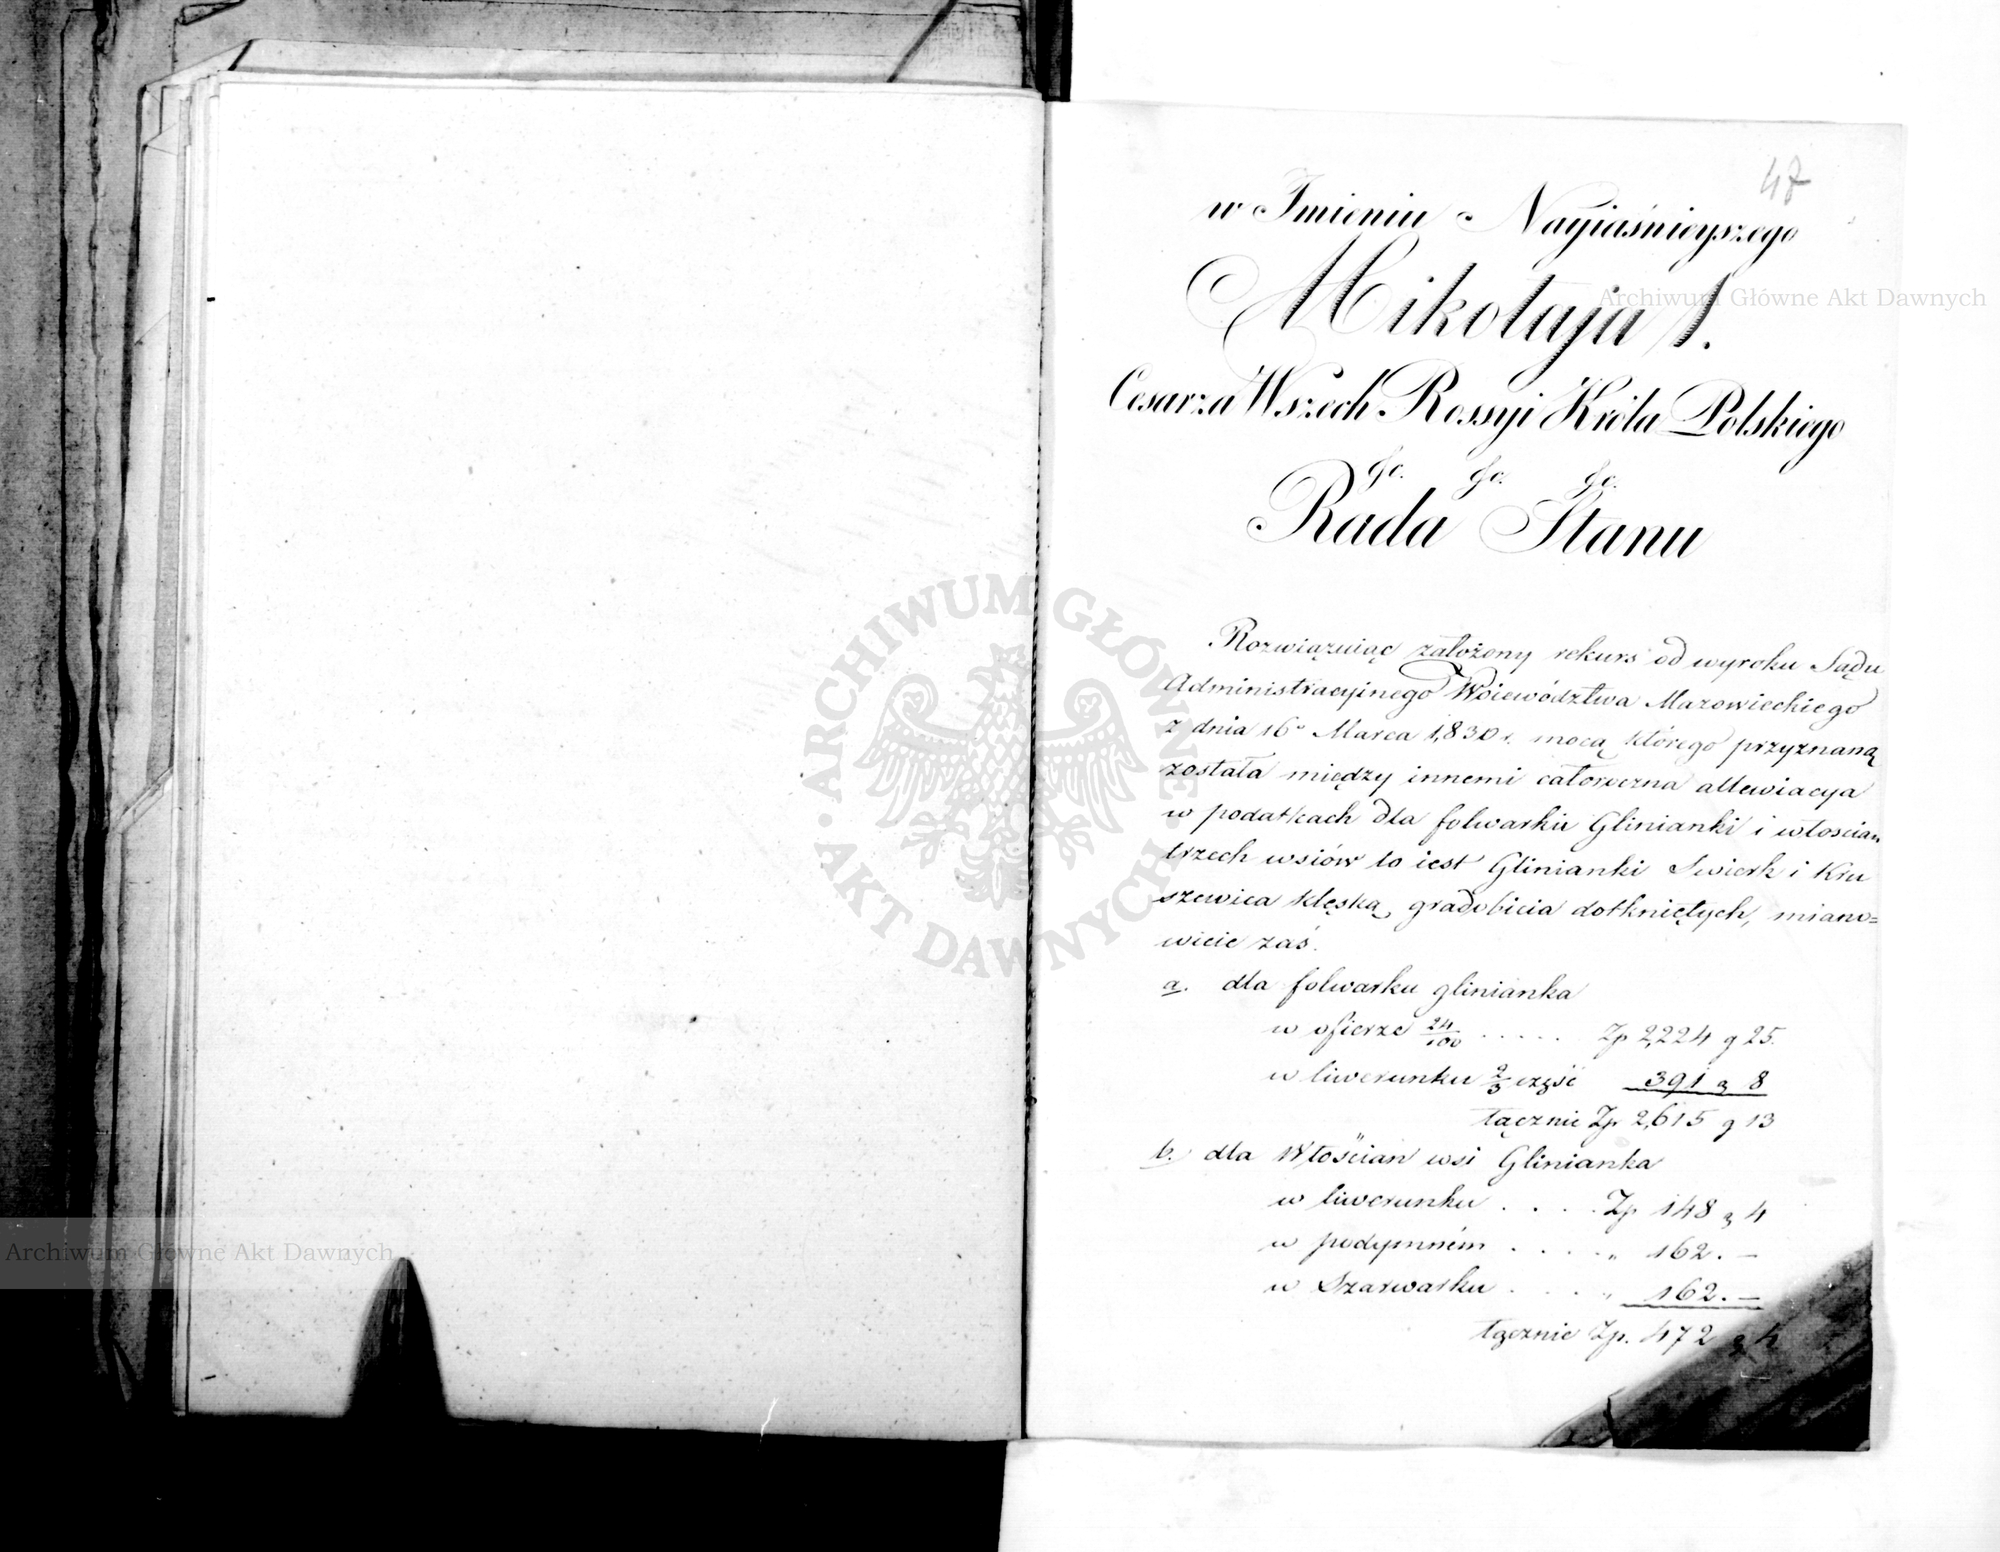 47
w Imieniu Nayiaśnieyszego
Mikołaja I.
Cesarza Wszech Rossyi Króla Polskiego
&c. &c. &c.
Rada Stanu
Rozwiązuiąc założony rekurs od wyroku Sądu
Administracyinego Woiewództwa Mazowieckiego
z dnia 16o Marca 1,830 r. mocą którego przyznaną
została między innemi całoroczna allewiacya
w podatkach dla folwarku Glinianki i włoscian
trzech wsiów to iest Glinianki Swierk i Kru
szewica klęską gradobicia dotkniętych, miano=
wicie zaś.
a. dla folwarku glinianka
w ofierze 24/100 . . . . . Zp 2,224 g 25.
w liwerunku 2/3 część 391 g 8
łącznie Zp 2,615 g 13
b. dla Włościan wsi Glinianka
w liwerunku . . . . Zp 148 g 4
w podymném . . . . " 162. —
w Szarwarku . . . . " 162. —
łącznie Zp. 472 g 4
ARCHIWUM GŁÓWNE AKT DAWNYCH
Archiwum Główne Akt Dawnych
Archiwum Główne Akt Dawnych